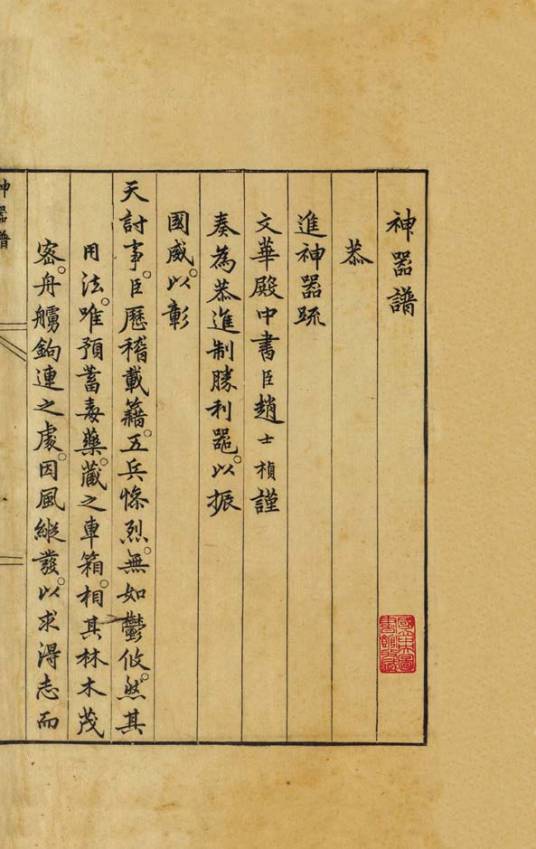 神器譜
恭
進神器疏
文華殿中書臣趙士楨謹
奏為恭進制勝利器。以振
國威。以彰
天討事。臣歷稽載籍。五兵慘烈。無如鬱攸。然其
用法。唯預蓄毒藥。藏之車箱。相其林木茂
密。舟艣鉤連之處。因風縱發。以求得志而
神器譜